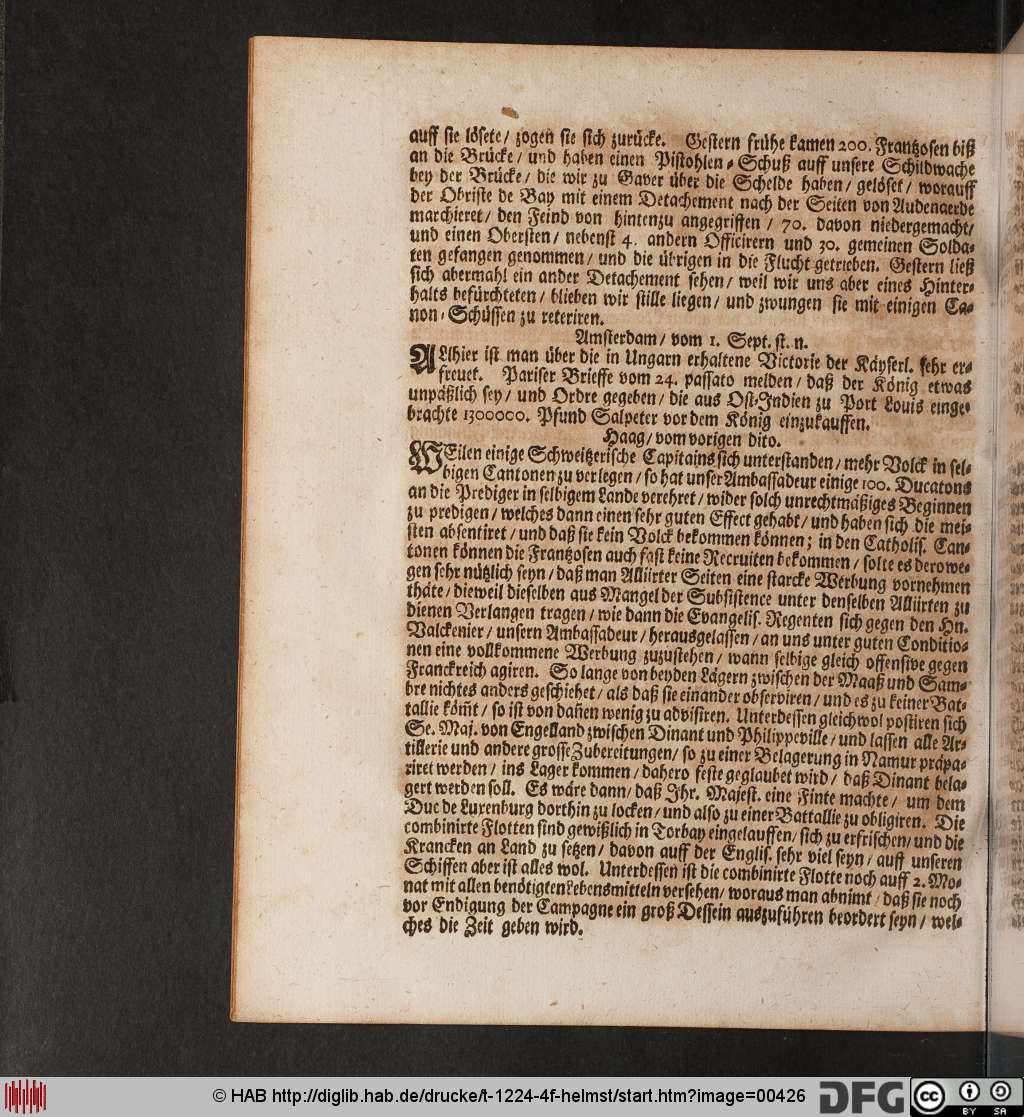 auff sie lösete / zogen sie sich zurücke. Gestern frühe kamen 200. Frantzosen biß
an die Brücke / und haben einen Pistohlen-Schuß auff unsere Schildwache
bey der Brücke / die wir zu Gaver über die Schelde haben / gelöset / worauff
der Obriste de Bay mit einem Detachement nach der Seiten von Audenaerde
marchieret / den Feind von hintenzu angegriffen / 70. davon niedergemacht /
und einen Obersten / nebenst 4. andern Officirern und 30. gemeinen Solda-
ten gefangen genommen / und die übrigen in die Flucht getrieben. Gestern ließ
sich abermahl ein ander Detachement sehen / weil wir uns aber eines Hinter-
halts befürchteten / blieben wir stille liegen / und zwungen sie mit einigen Ca-
non-Schüssen zu reteriren.
Amsterdam / vom 1. Sept. st. n.
ALlhier ist man über die in Ungarn erhaltene Victorie der Käyserl. sehr er-
freuet. Pariser Brieffe vom 24. passato melden / daß der König etwas
unpäßlich sey / und Ordre gegeben / die aus Ost-Indien zu Port Louis einge-
brachte 1300000. Pfund Salpeter vor dem König einzukauffen.
Haag / vom vorigen dito.
WEilen einige Schweitzerische Capitains sich unterstanden / mehr Volck in sel-
bigen Cantonen zu verlegen / so hat unser Ambassadeur einige 100. Ducatons
an die Prediger in selbigem Lande verehret / wider solch unrechtmäßiges Beginnen
zu predigen / welches dann einen sehr guten Effect gehabt / und haben sich die mei-
sten absentiret / und daß sie kein Volck bekommen können; in den Catholis. Can-
tonen können die Frantzosen auch fast keine Recruiten bekommen / solte es derowe-
gen sehr nützlich seyn / daß man Alliirter Seiten eine starcke Werbung vornehmen
thäte / dieweil dieselben aus Mangel der Subsistence unter denselben Alliirten zu
dienen Verlangen tragen / wie dann die Evangelis. Regenten sich gegen den Hn.
Valckenier / unsern Ambassadeur / herausgelassen / an uns unter guten Conditio-
nen eine vollkommene Werbung zuzustehen / wann selbige gleich offensive gegen
Franckreich agiren. So lange von beyden Lägern zwischen der Maaß und Sam-
bre nichtes anders geschiehet / als daß sie einander observiren / und es zu keiner Bat-
tallie köm̃t / so ist von dañen wenig zu advisiren. Unterdessen gleichwol postiren sich
Se. Maj. von Engelland zwischen Dinant und Philippeville / und lassen alle Ar-
tillerie und andere grosse Zubereitungen / so zu einer Belagerung in Namur präpa-
riret werden / ins Lager kommen / dahero feste geglaubet wird / daß Dinant bela-
gert werden soll. Es wäre dann / daß Ihr. Majest. eine Finte machte / um dem
Duc de Luxenburg dorthin zu locken / und also zu einer Battallie zu obligiren. Die
combinirte Flotten sind gewißlich in Torbay eingelauffen / sich zu erfrischen / und die
Krancken an Land zu setzen / davon auff der Englis. sehr viel seyn / auff unseren
Schiffen aber ist alles wol. Unterdessen ist die combinirte Flotte noch auff 2. Mo-
nat mit allen benötigten Lebensmitteln versehen / woraus man abnimt / daß sie noch
vor Endigung der Campagne ein groß Dessein auszuführen beordert seyn / wel-
ches die Zeit geben wird.
© HAB http://diglib.hab.de/drucke/t-1224-4f-helmst/start.htm?image=00426
DFG
cc
BY SA